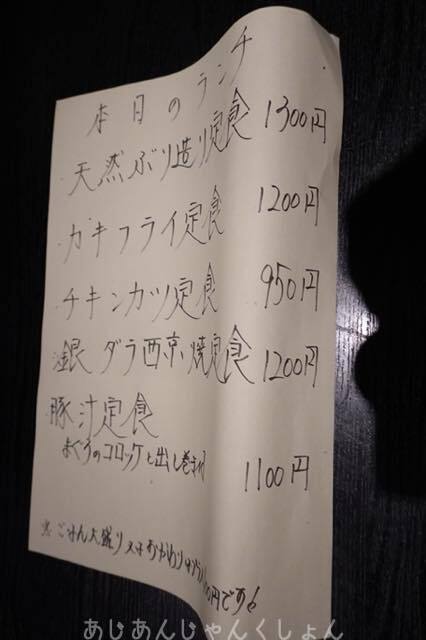 本日のランチ
天然ぶり造り定食 1300円
カキフライ定食 1200円
チキンカツ定食 950円
銀ダラ西京焼定食 1200円
豚汁定食
まぐろのコロッケと出し巻付 1100円
※ごはん大盛り 円です
あじあんじゃんくしょん